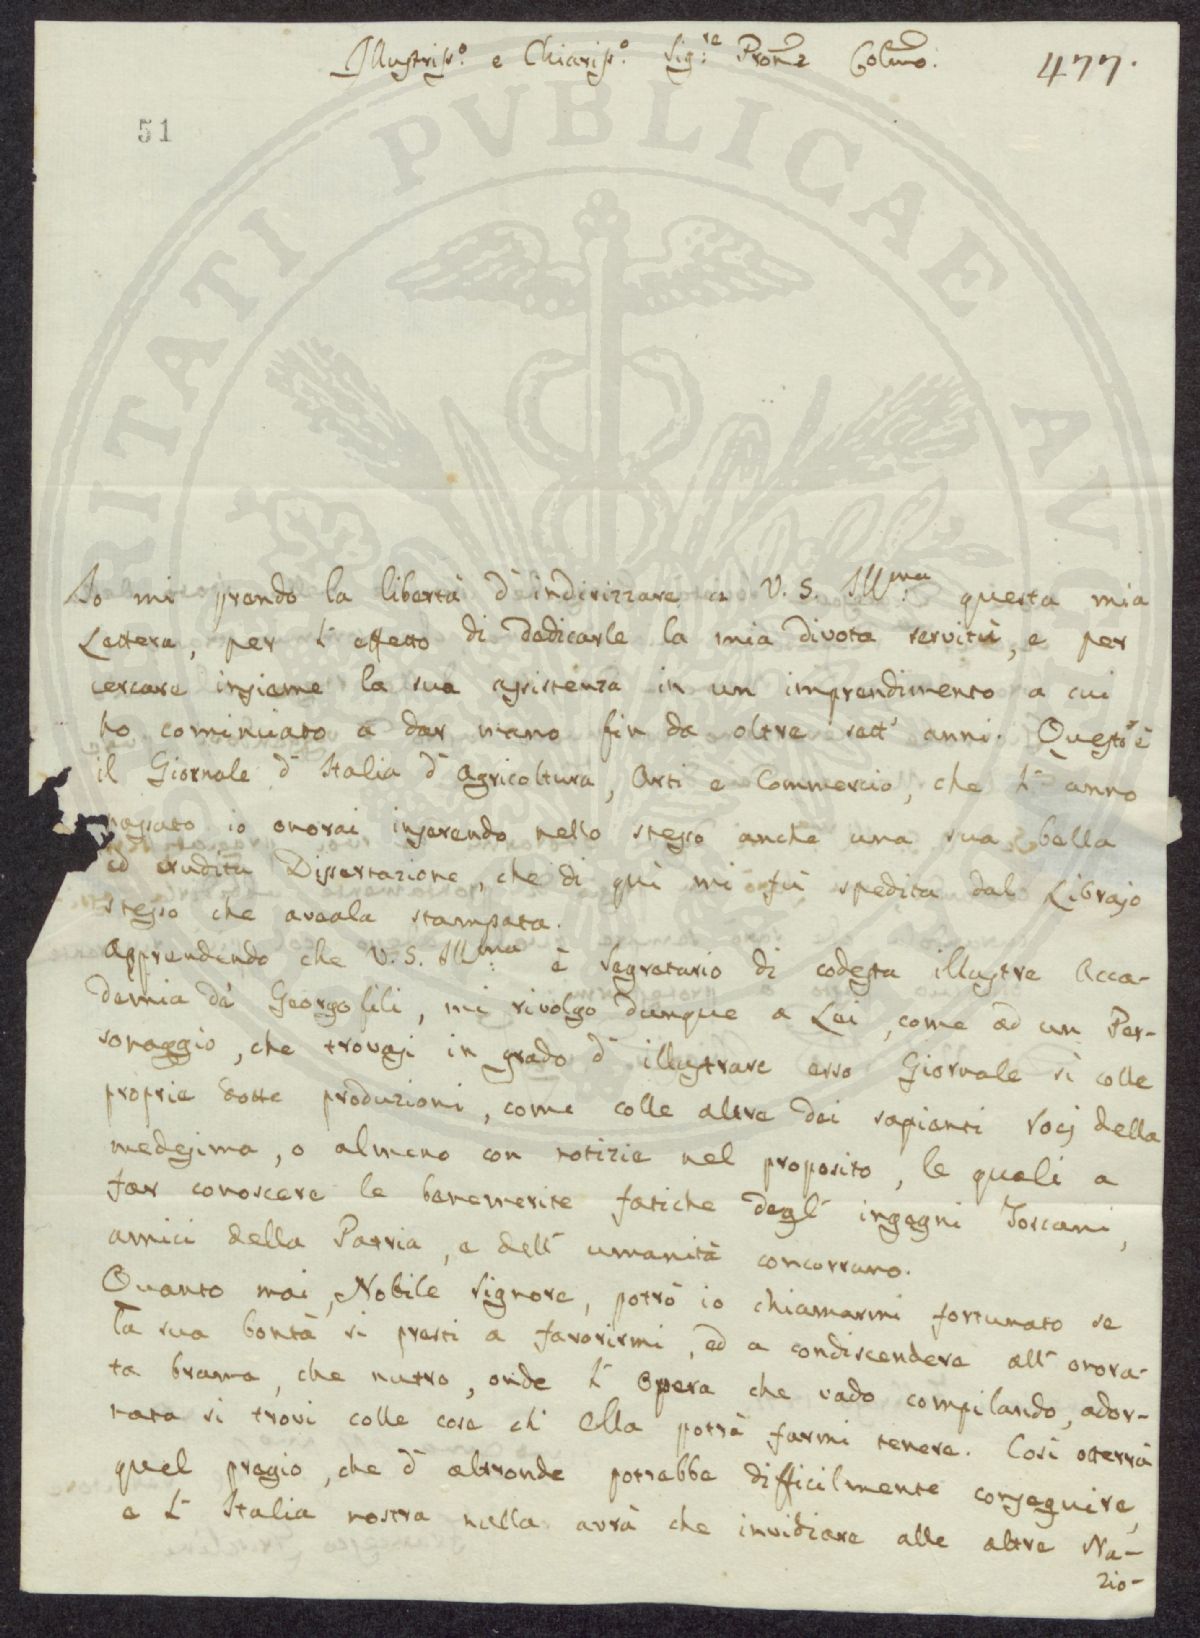 Illustriss.o e Chiariss.o Sig.re Pron.e Colmo.
477.
51
PUBLICAE
Io mi prendo la libertà d'indirizzare a V. S. Ill.ma questa mia
Lettera, per l'effetto di dedicarle la mia divota servitù, e per
cercare insieme la sua assistenza in un imprendimento a cui
ho cominciato a dar mano fin da oltre sett' anni. Questo è
il Giornale d'Italia d'Agricoltura, Arti e Commercio, che l'anno
passato io onorai inserendo nello stesso anche una sua bella
ed erudita Dissertazione, che di quì mi fù spedita dal Librajo
stesso che aveala stampata.
Apprendendo che V. S. Ill.ma è Segretario di codesta illustre Acca-
demia de' Georgofili, mi rivolgo dunque a Lei, come ad un Per-
sonaggio, che trovasi in grado d'illustrare esso Giornale sì colle
proprie dotte produzioni, come colle altre dei sapienti Socj della
medesima, o almeno con notizie nel proposito, le quali a
far conoscere le benemerite fatiche degl' ingegni Toscani,
amici della Patria, e dell' umanità concorrano.
Quanto mai, Nobile Signore, potrò io chiamarmi fortunato se
la sua bontà si presti a favorirmi, ed a condiscendere all' onora-
ta brama, che nutro, onde l'Opera che vado compilando, ador-
nata si trovi colle cose ch' Ella potrà farmi tenere. Così otterrà
quel pregio, che d'altronde potrebbe difficilmente conseguire,
e l'Italia nostra nulla avrà che invidiare alle altre Na-
zio-